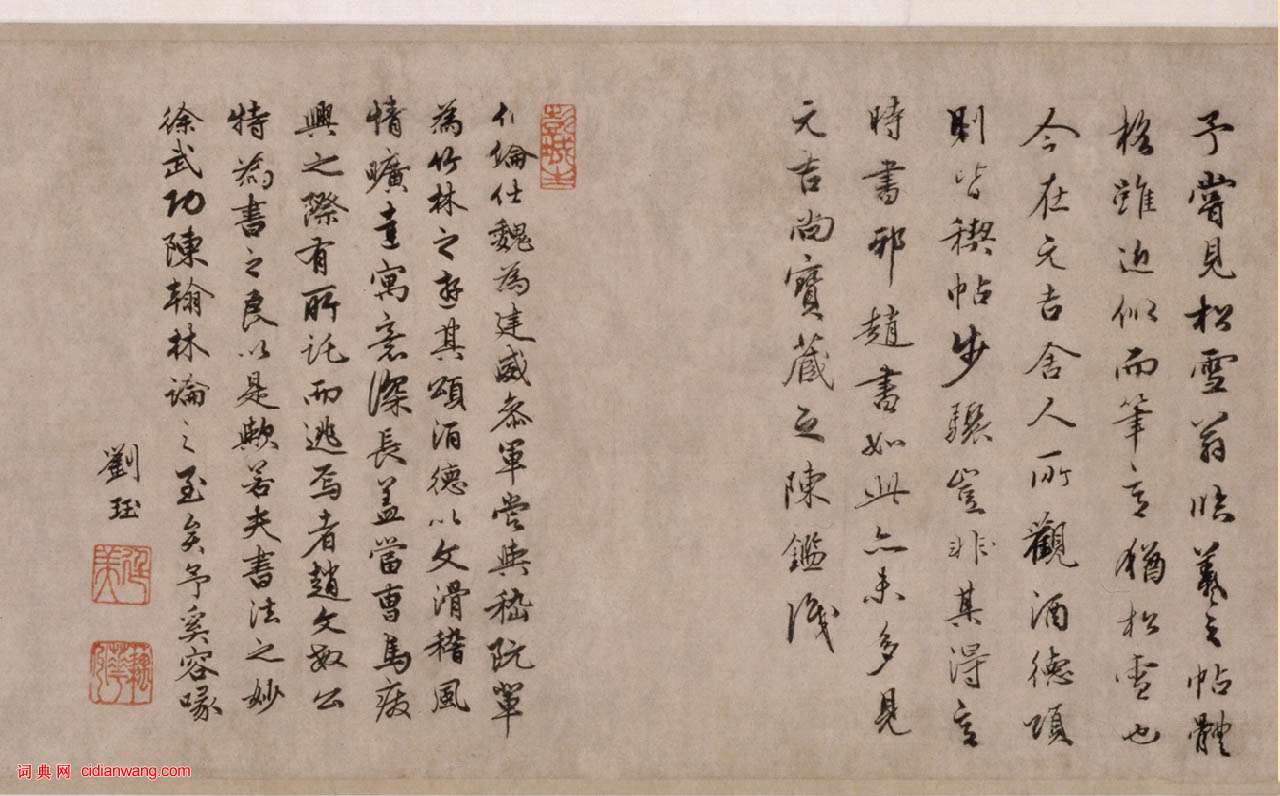 予嘗見松雪翁臨羲之帖體
格雖近似而筆意猶松雪也
今在元吉舍人所觀酒德頌
則皆稧帖步驟豈非其得意
時書邪趙書如此亦未多見
元吉尚寶藏之陳鑑識
彭城
伯倫仕魏為建威參軍嘗與嵇阮輩
為竹林之遊其頌酒德以文滑稽風
情曠達寓意深長盖當曹馬廢
興之際有所託而逃焉者趙文敏公
特為書之良以是歟若夫書法之妙
徐武功陳翰林論之至矣予奚容喙
劉珏
廷美
詞典网 cidianwang.com